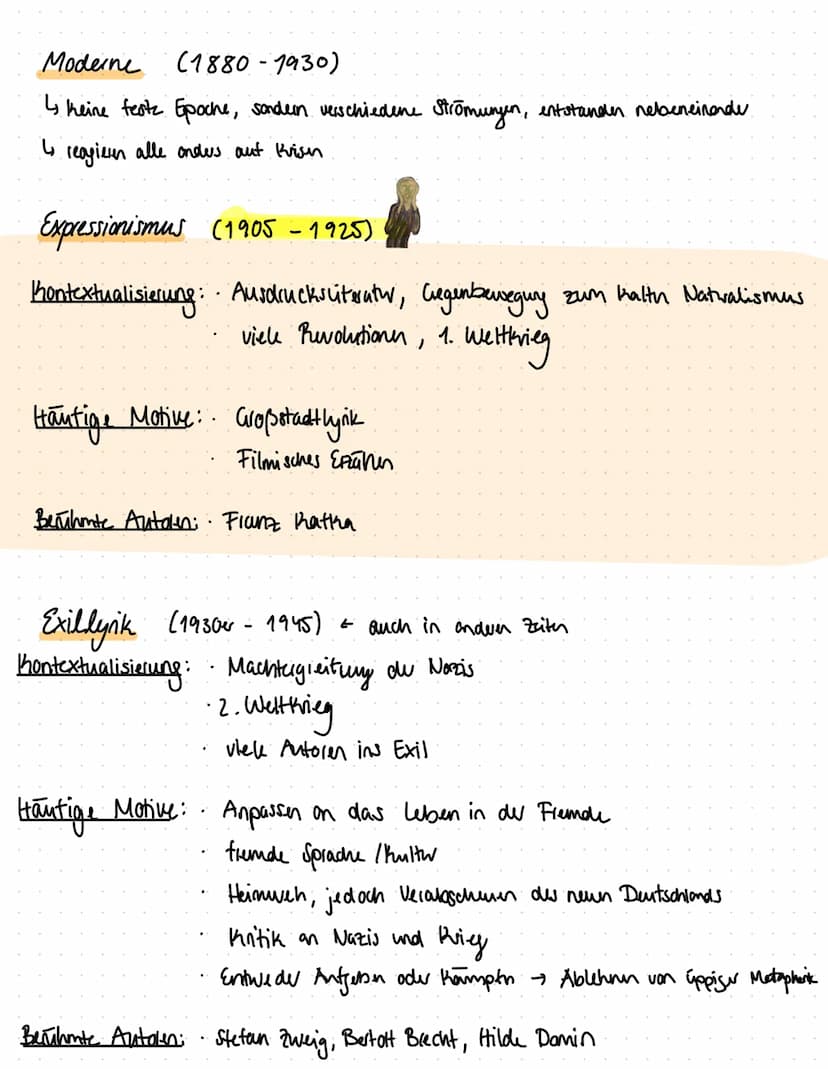 Moderne (1880 - 1930)
↳ keine feste Epoche, sondern verschiedene Strömungen, entstanden nebeneinander
↳ reagieren alle anders auf Krisen
Expressionismus (1905 - 1925)
Kontextualisierung: · Ausdrucksliteratur, Gegenbewegung zum kalten Naturalismus
· viele Revolutionen, 1. Weltkrieg
Häufige Motive: · Großstadtlyrik
· Filmisches Erzählen
Berühmte Autoren: · Franz Kafka
Exillyrik (1930er - 1945) ← auch in anderen Zeiten
Kontextualisierung: · Machtergreifung der Nazis
· 2. Weltkrieg
· viele Autoren ins Exil
Häufige Motive: · Anpassen an das Leben in der Fremde
· fremde Sprache / Kultur
· Heimweh, jedoch Verabscheuen des neuen Deutschlands
· Kritik an Nazis und Krieg
· Entweder Aufgeben oder Kämpfen → Ablehnen von üppiger Metaphorik
Berühmte Autoren: · Stefan Zweig, Bertolt Brecht, Hilde Domin